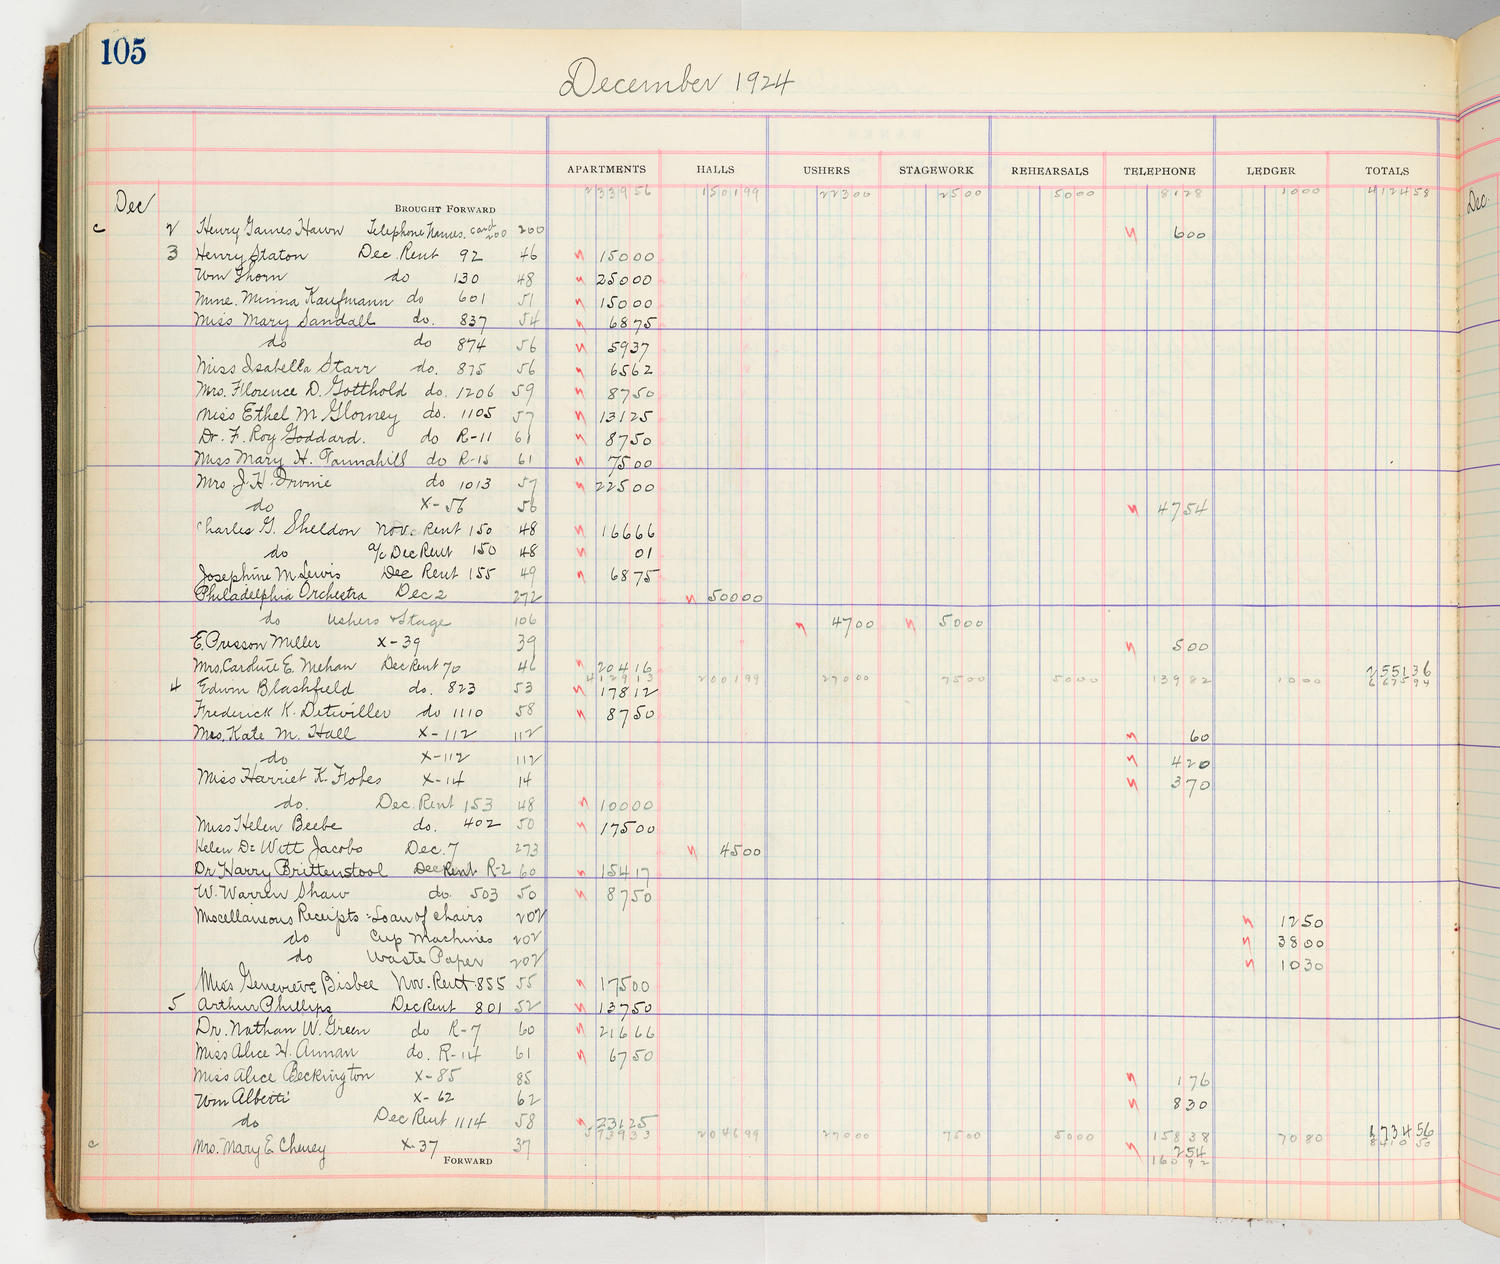 105
December 1924
APARTMENTS HALLS USHERS STAGEWORK REHEARSALS TELEPHONE LEDGER TOTALS
Dec BROUGHT FORWARD 2339 56 1501 99 223 00 25 00 50 00 81 28 10 00 4124 58
c 2 Henry James Hawn Telephone Names. card 200 200 6 00
3 Henry Staton Dec. Rent 92 46 150 00
Wm Thorn do 130 48 250 00
Mme. Minna Kaufmann do 601 51 150 00
Miss Mary Sandall do. 837 54 68 75
do do 874 56 59 37
Miss Isabella Starr do. 875 56 65 62
Mrs. Florence D. Gotthold do. 1206 59 87 50
Miss Ethel M Glorney do. 1105 57 131 25
Dr. F. Roy Goddard. do R-11 61 87 50
Miss Mary H. Tannahill do R-15 61 75 00
Mrs J. H. Irvine do 1013 57 225 00
do X-56 56 47 54
Charles G. Sheldon Nov. Rent 150 48 166 66
do a/c Dec Rent 150 48 01
Josephine M Lewis Dec Rent 155 49 68 75
Philadelphia Orchestra Dec 2 272 500 00
do Ushers & Stage 106 47 00 50 00
E. Presson Miller X-39 39 5 00
Mrs. Caroline E. Mehan Dec Rent 70 46 204 16 2551 36
4129 13 2001 99 270 00 75 00 50 00 139 82 10 00 6675 94
4 Edwin Blashfield do. 823 53 178 12
Frederick K. Detwiller do 1110 58 87 50
Mrs. Kate M. Hall X-112 112 60
do X-112 112 4 20
Miss Harriet K. Fobes X-14 14 3 70
do. Dec. Rent 153 48 100 00
Miss Helen Beebe do. 402 50 175 00
Helen De Witt Jacobs Dec. 7 273 45 00
Dr Harry Brittenstool Dec Rent R-2 60 154 17
W. Warren Shaw do. 503 50 87 50
Miscellaneous Receipts:- Loan of chairs 202 12 50
do Cup Machines 202 38 00
do Waste Paper 202 10 30
Miss Genevieve Bisbee Nov. Rent 855 55 175 00
5 Arthur Phillips Dec Rent 801 52 137 50
Dr. Nathan W. Green do R-7 60 216 66
Miss Alice H. Annan do. R-14 61 67 50
Miss Alice Beckington X-85 85 1 76
Wm Alberti X-62 62 8 30
do Dec Rent 1114 58 231 25
5739 33 2046 99 270 00 75 00 50 00 158 38 70 80 1734 56
c Mrs. Mary E. Cheney X-37 37 2 54 8410 50
FORWARD 160 92